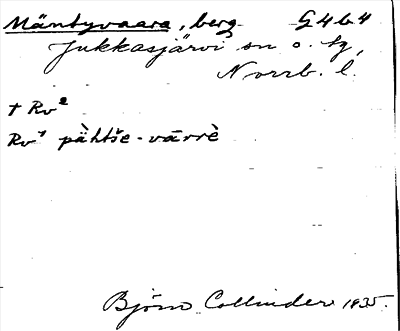 Mäntyvaara, berg G4b4
Jukkasjärvi sn o. tg,
Norrb. l.
+ Rv²
Rv¹ pàhtše-vārrè
Björn Collinder 1935.